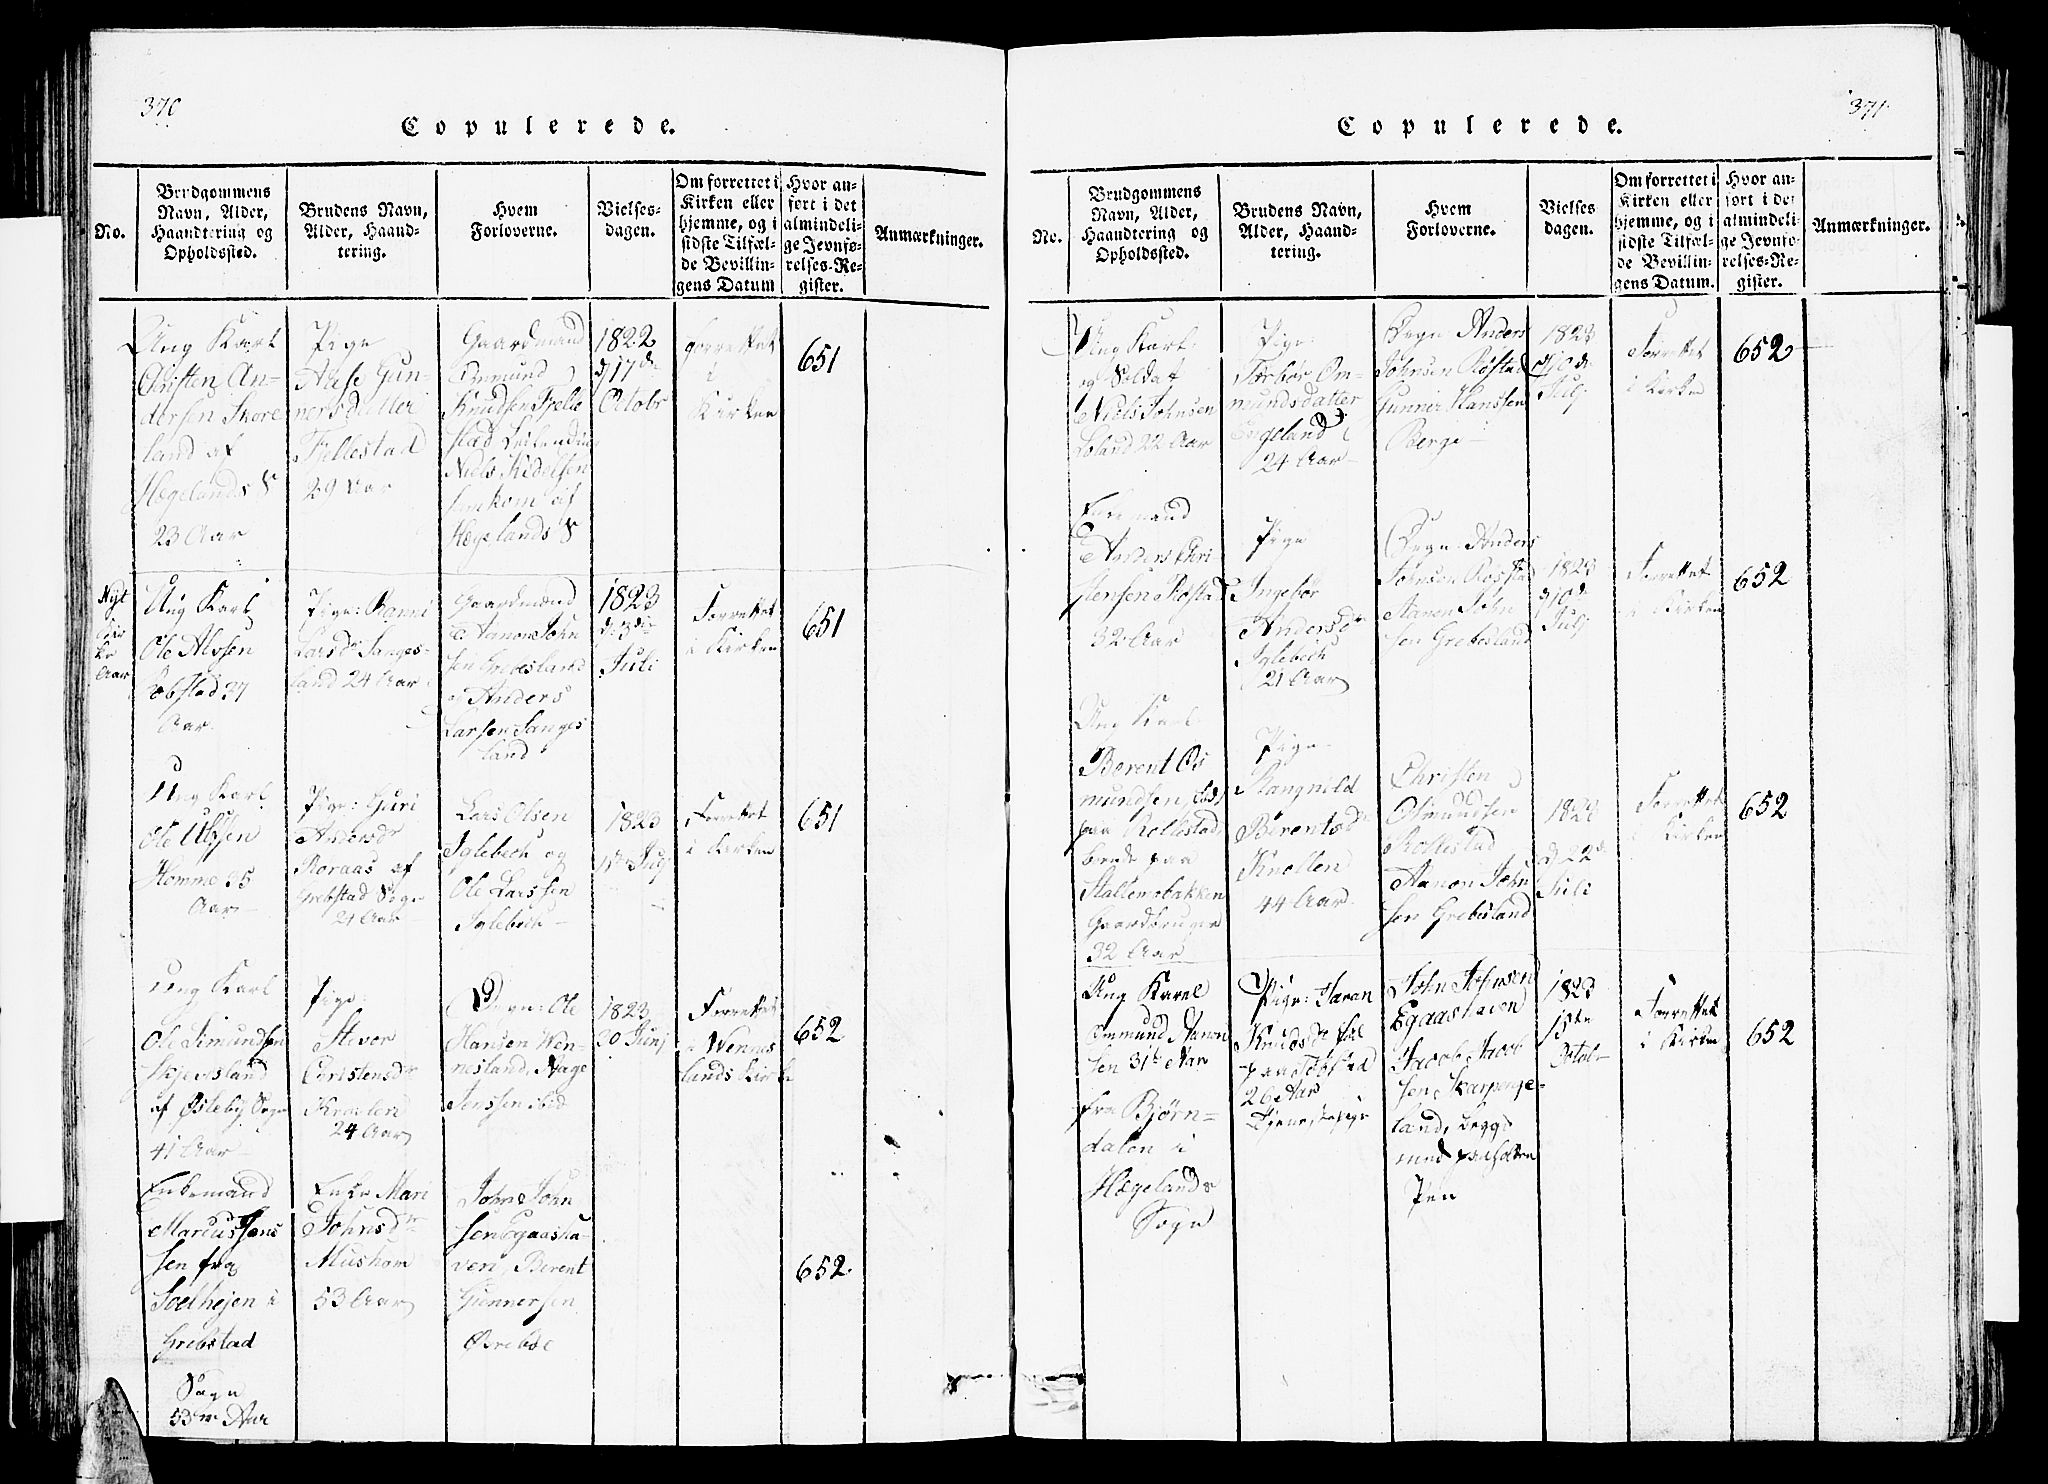 370
Copulerede.
No.
Brudgommens
Navn, Alder,
Haandtering og
Opholdssted.
Brudens Navn,
Alder, Haand-
tering.
Hvem
Forloverne.
Vielses-
dagen.
Om forrettet i
Kirken eller
hjemme, og i
sidste Tilfæl-
de Bevillin-
gens Datum
Hvor an-
ført i det
almindeli-
ge Jevnfø-
relses-Re-
gister.
Anmærkninger.
Ung Karl
Christen An-
dersen Skore
land af
Hægelands S
23 Aar
Pige
Aase Gun-
nersdatter
Fjellestad
29 Aar
Gaardmand
Ommund
Knudsen Fjelle
stad
Niels Kidelsen
af
Hægelands S
1822
d 17de
Octobr
forrettet
i
Kirken
651
Nyt
Kir
ke
Aar
Ung Karl
Ole Alssen
37
Aar
Pige: Ronni
Larsdr Sanges-
land 24 Aar
Gaardmænd
Aanon John
sen Grebesland
Anders
Larsen Sanges
land
1823
d: 3die
Juli
Forrettet
i Kirken
651
Ung Karl
Ole Ulssen
Homme 35
Aar
Pige: Guri
Andersdr
Roraas af
Grebstad Sogn
21 Aar
Lars Olsen
Iglebech og
Ole Larssen
Iglebech
1823
1ste Julj
Forrettet
i Kirken
651
Ung Karl
Ole Simundsen
Skjevsland
af Øslebÿ Sogn
41 Aar
Pige:
Sivor
Christensdr
24 Aar
Ole
Hansen Wen-
nesland, Aage
Jenssen ibid
1823
30 Junj
Forrettet
i Wennes
lands Kirke
652
Enkemand
Marcus Jens
sen fra
i
Grebstad
Sogn
Aar
Enke Mari
Johnsdr
Mushom
53 Aar
John John
sen Egaasha-
ven, Berent
Gunnersen
Øvrebøe
652.
371
Copulerede.
No.
Brudgommens
Navn, Alder,
Haandtering og
Opholdssted.
Brudens Navn,
Alder, Haand-
tering.
Hvem
Forloverne.
Vielses
dagen.
Om forrettet i
Kirken eller
hjemme, og i
sidste Tilfæl-
de Bevillin-
gens Datum.
Hvor an-
ført i det
almindeli-
ge Jevnfø-
relses-Re-
gister.
Anmærkninger.
Ung Karl
og Soldat
Niels Johnsen
Loland 22 Aar
Pige:
Torbor Om-
mundsdatter
Engeland
24 Aar
Anders
Johnsen Røstad
Gunner Hanssen
Berge
1823
d 10de
Julj
Forrettet
i Kirken
652
Enkemand
Anders Chri
stensen Røstad
32 Aar
Pige
Ingebor
Andersdr
Iglebech
21 Aar
Anders
Johnsen Røstad
Aanon John
sen Grebesland
1823
d 10de
Julj
Forrettet
i Kirken
652
Ung Karl
Berent Os
mundsen, fød
paa Rollestad
boende paa
Stallemobakken
Gaardbruger
32 Aar
Pige
Rangnild
Berentsdr
Knollen
44 Aar
Christen
Osmundsen
Rollestad
Aanon John
sen Grebesland
d 22de
Juli
Forrettet
i Kirken
652
Ung Karl
Ommund Aanon
sen 31te Aar
fra Bjørn-
dalen i
Hægelands
Sogn
Pige: Taran
Knudsdr
paa
26 Aar
Tjenestepige
John Johnsen
Egaashaven
Jacob Jacob
sen Skarpenge-
land, begge
med paaholden
Pen
1823
15de
Octobr
Forrettet
i Kirken
652